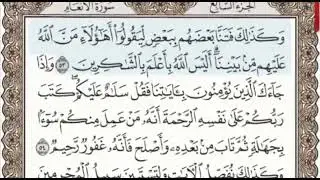 الجزء السابع سورة الأنعام
وَكَذَٰلِكَ فَتَنَّا بَعْضَهُم بِبَعْضٍ لِّيَقُولُوٓا۟ أَهَٰٓؤُلَآءِ مَنَّ ٱللَّهُ
عَلَيْهِم مِّنۢ بَيْنِنَآ أَلَيْسَ ٱللَّهُ بِأَعْلَمَ بِٱلشَّٰكِرِينَ ٥٣ وَإِذَا
جَآءَكَ ٱلَّذِينَ يُؤْمِنُونَ بِـَٔايَٰتِنَا فَقُلْ سَلَٰمٌ عَلَيْكُمْ كَتَبَ
رَبُّكُمْ عَلَىٰ نَفْسِهِ ٱلرَّحْمَةَ أَنَّهُۥ مَنْ عَمِلَ مِنكُمْ سُوٓءًۢا
بِجَهَٰلَةٍ ثُمَّ تَابَ مِنۢ بَعْدِهِۦ وَأَصْلَحَ فَأَنَّهُۥ غَفُورٌ رَّحِيمٌ ٥٤
وَكَذَٰلِكَ نُفَصِّلُ ٱلْـَٔايَٰتِ وَلِتَسْتَبِينَ سَبِيلُ ٱلْمُجْرِمِينَ